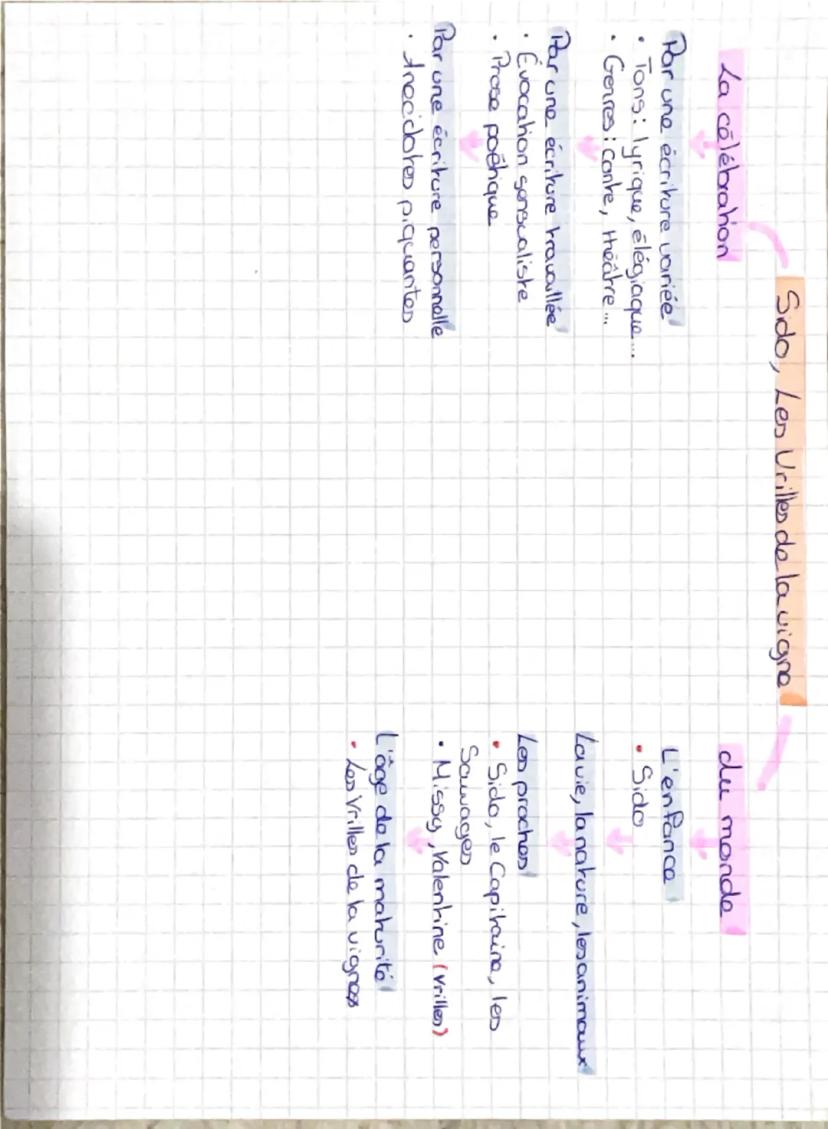 Sido, Les Vrilles de la vigne
La célébration
Par une écriture variée
• Tons : lyrique, élégiaque...
• Genres : conte, théâtre...
Par une écriture travaillée
• Évocation sensualiste
• Prose poétique
Par une écriture personnelle
• Anecdotes piquantes
du monde
L'enfance
• Sido
La vie, la nature, les animaux
Les proches
• Sido, le Capitaine, les
Sauvages
• Missy, Valentine (Vrilles)
L'âge de la maturité
• Les Vrilles de la vignes